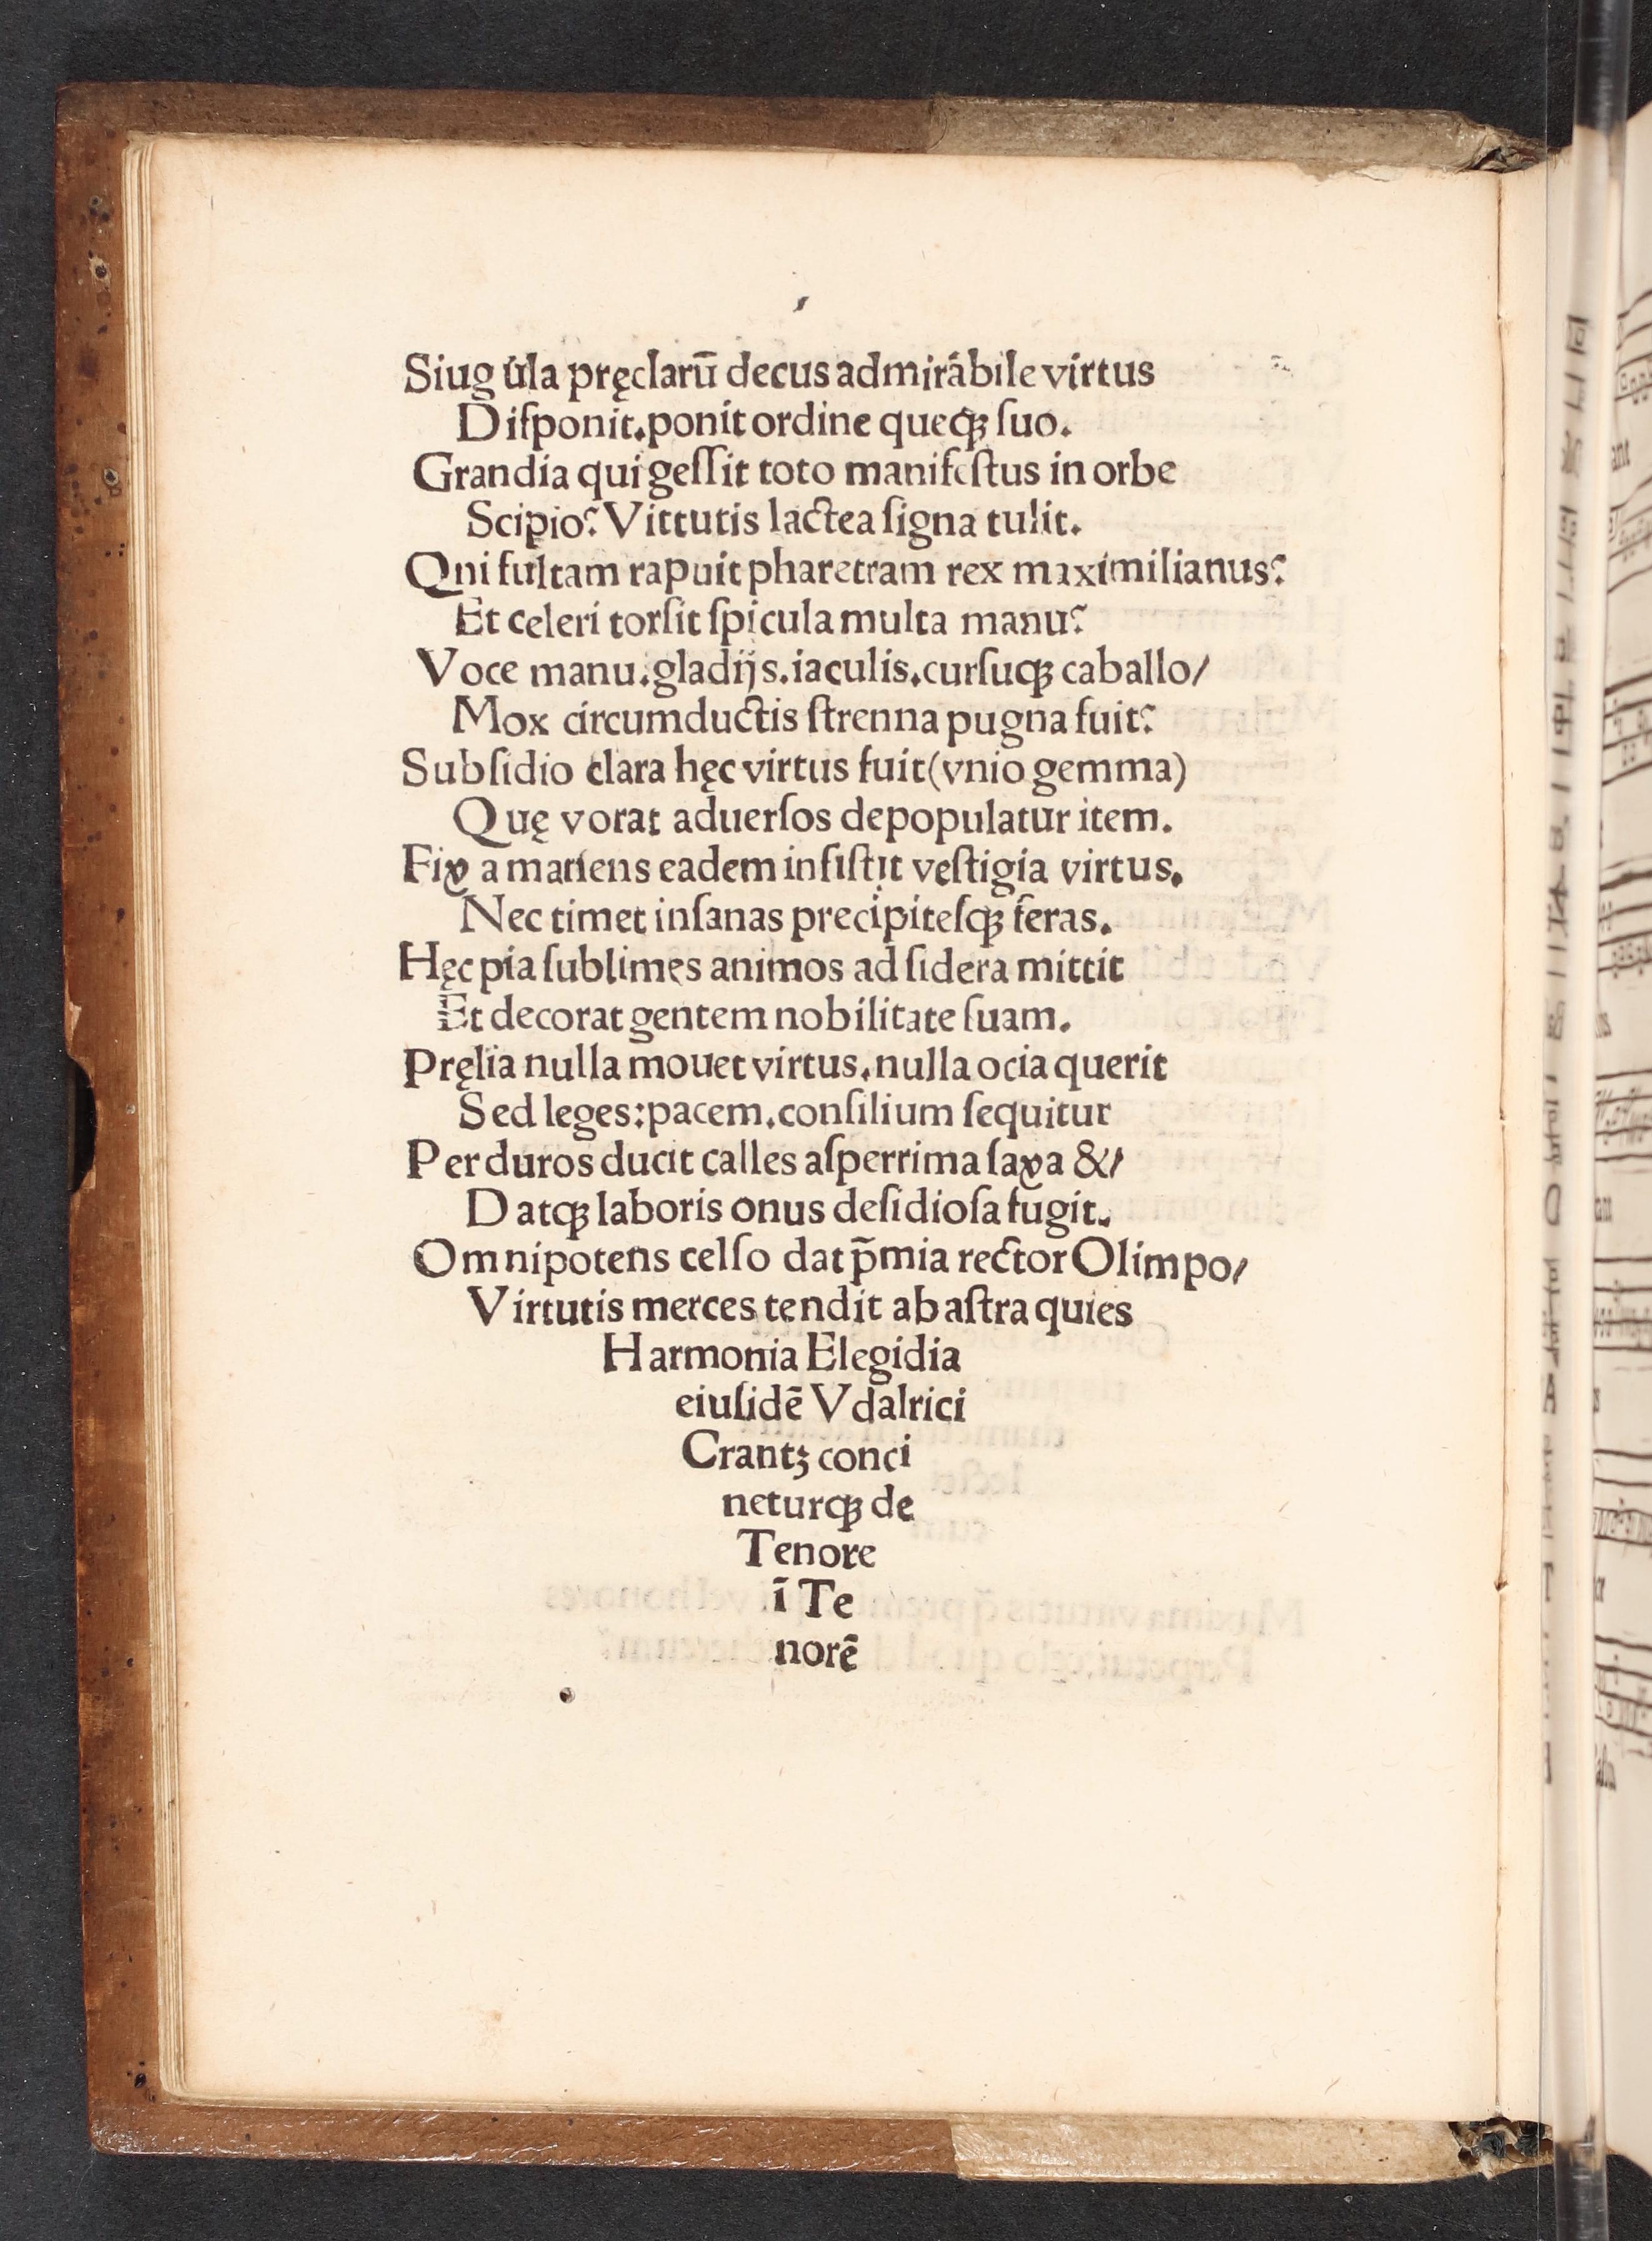 Siug ula pręclarū decus admirábile virtus
Diſponit.ponit ordine queqꝫ ſuo.
Grandia qui geſſit toto manifeſtus in orbe
Scipio? Vittutis lactea ſigna tulit.
Qni fultam rapuit pharetram rex maximilianus?
Et celeri torſit ſpicula multa manu?
Voce manu.gladijs.iaculis.curſuqꝫ caballo/
Mox circumductis ſtrenna pugna fuit?
Subſidio clara hęc virtus fuit(vnio gemma)
Quę vorat aduerſos depopulatur item.
Fix a maniens eadem inſiſtit veſtigia virtus.
Nec timet inſanas precipiteſqꝫ feras.
Hęc pia ſublimes animos ad ſidera mittit
Et decorat gentem nobilitate ſuam.
Pręlia nulla mouet virtus.nulla ocia querit
Sed leges:pacem.conſilium ſequitur
Per duros ducit calles aſperrima ſaxa &/
Datqꝫ laboris onus deſidioſa fugit.
Omnipotens celſo dat p̄mia rector Olimpo/
Virtutis merces tendit ab aſtra quies
Harmonia Elegidia
eiuſidē Vdalrici
Crantꝫ conci
neturqꝫ de
Tenore
ī Te
norē